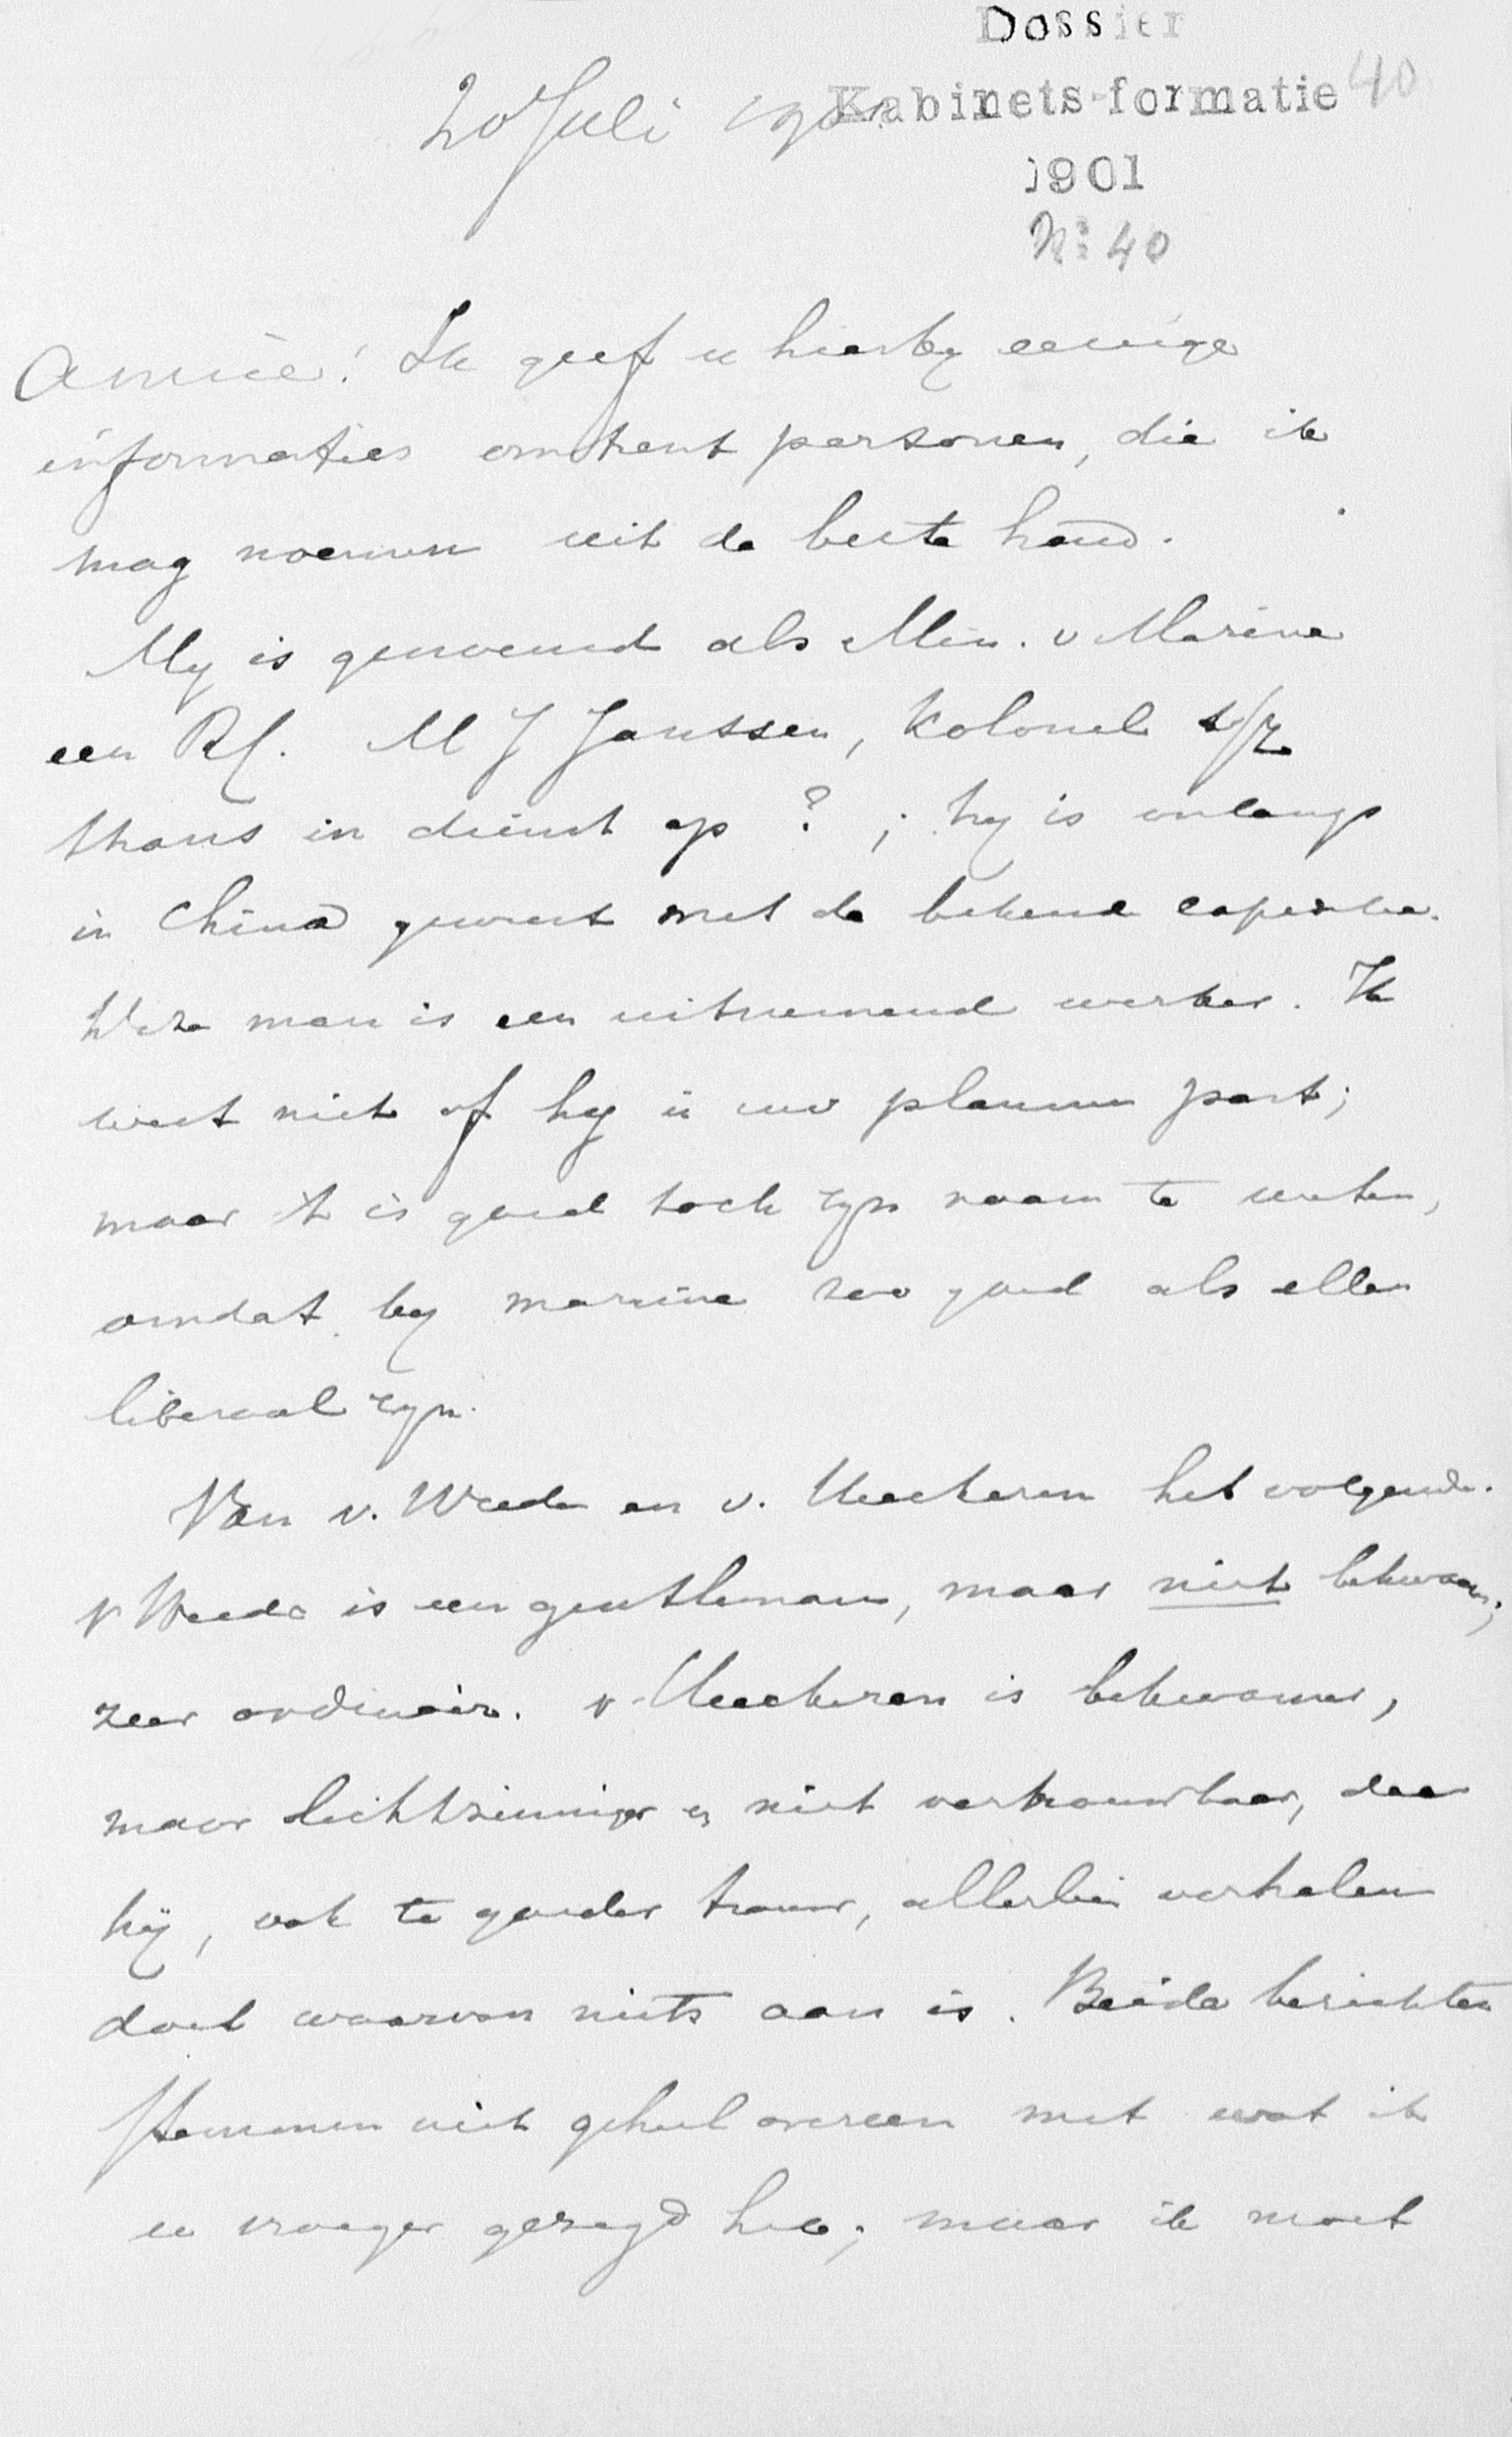 Dossier
Kabinets-formatie 40
1901
No 40
20 Juli 1901
Amice! Ik geef u hierby eenige
informaties omtrent personen, die ik
mag noemen uit de beste hand.
My is genoemd als Min. v Marine
een M J Janssen, Kolonel t/z
thans in dienst op ?; hy is onlangs
in China geweest met de bekende
Deze man is een uitnemend werker. Ik
weet niet of hy in uw plannen past;
maar 't is goed toch zyn naam te weten,
omdat by marine zoo goed als allen
liberaal zyn.
Van v. Weede en v. Heeckeren het volgende.
v Weede is een gentleman, maar niet bekwaam;
zeer ordinair. v Heeckeren is bekwamer,
maar lichtzinniger en niet vertrouwbaar, daar
hij, ook te goeder trouw, allerlei verhalen
doet waarvan niets aan is. Beide berichten
stemmen niet geheel overeen met wat ik
u vroeger gezegd heb; maar ik moet